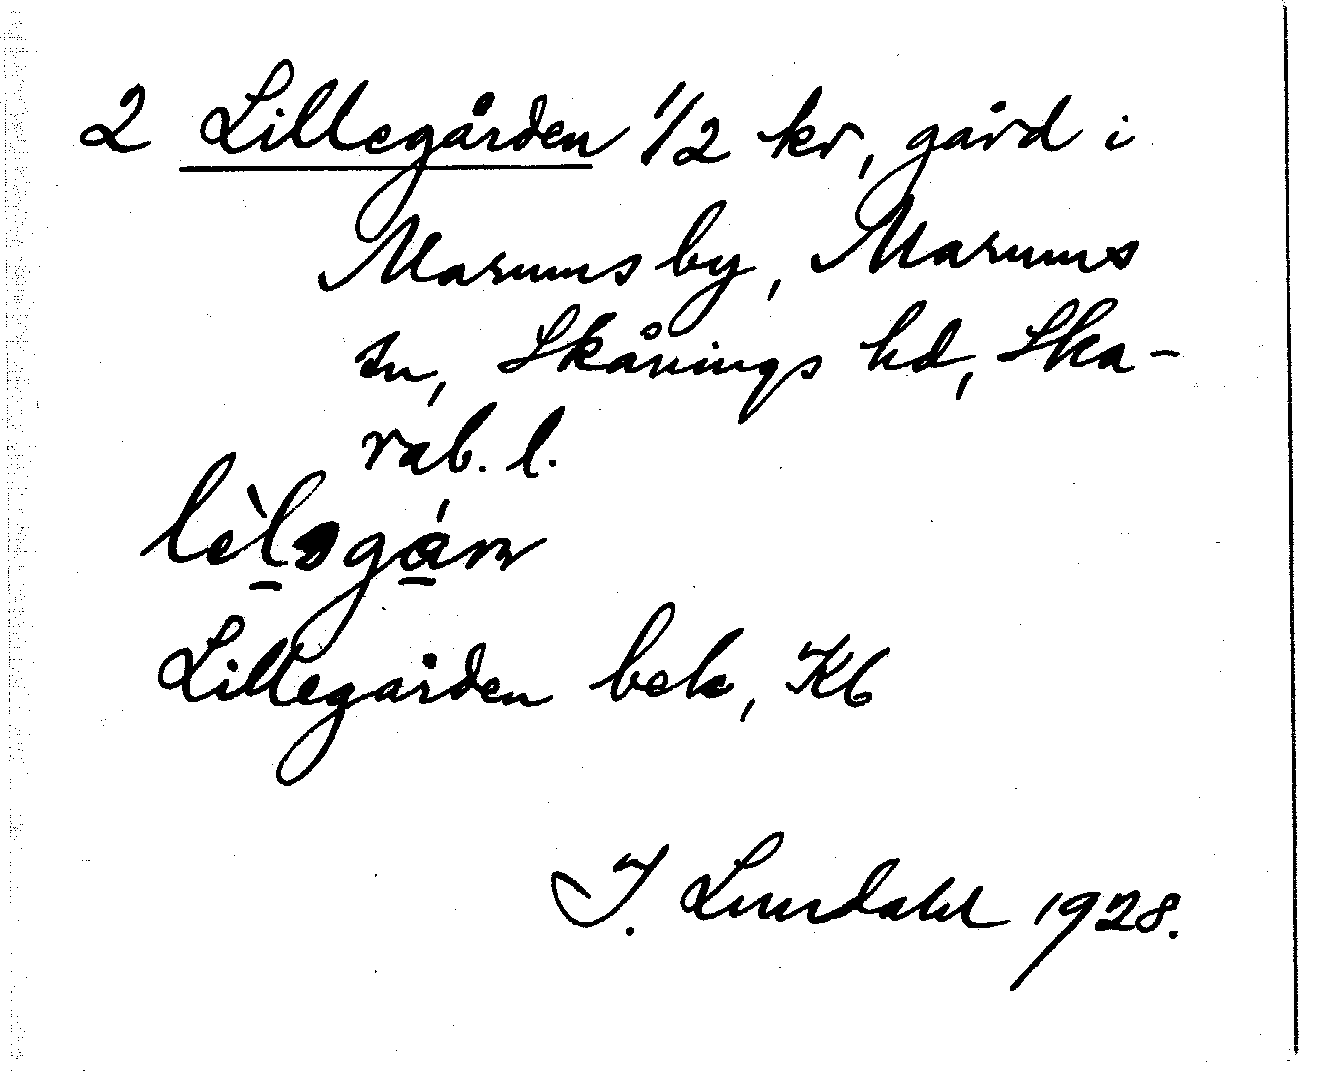 2 Lillegården 1/2 kr, gård i
Marums by, Marums
sn, Skånings hd, Ska-
rab. l.
lèləgán
Lillegården bek, Kb
I. Lundahl 1928.